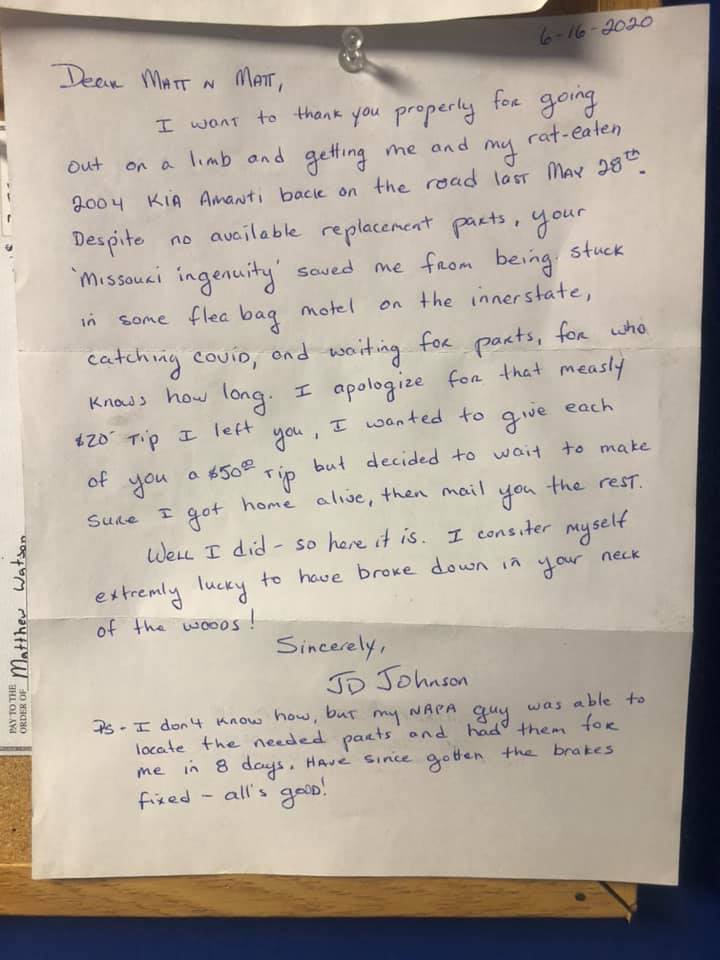 6-16-2020
Dear Matt n Matt,
I want to thank you properly for going
out on a limb and getting me and my rat-eaten
2004 Kia Amanti back on the road last May 28th.
Despite no available replacement parts, your
'Missouri ingenuity' saved me from being stuck
in some flea bag motel on the innerstate,
catching covid, and waiting for parts, for who
knows how long. I apologize for that measly
$20 tip I left you, I wanted to give each
of you a $50.00 tip but decided to wait to make
sure I got home alive, then mail you the rest.
Well I did - so here it is. I consiter myself
extremly lucky to have broke down in your neck
of the woods!
Sincerely,
JD Johnson
Ps - I don't know how, but my NAPA guy was able to
locate the needed parts and had them for
me in 8 days. Have since gotten the brakes
fixed - all's good!
PAY TO THE
ORDER OF Matthew Watson